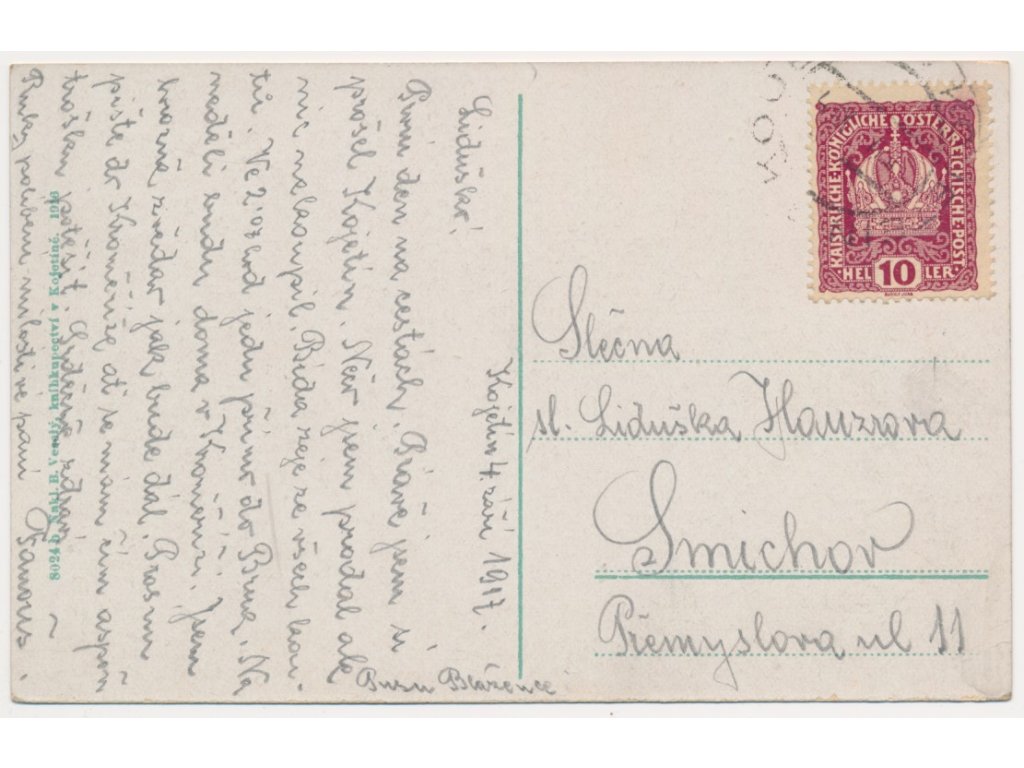 Kojetín 4. září 1917.
Liduško!
První den na cestách. Právě jsem si
prošel Kojetín. Něco jsem prodal ale
nic nekoupil. Bída zeje ze všech kou-
tů. Ve 2 odjedu přímo do Brna. Na
neděli budu doma v Kroměříži. Jsem
hrozně zvědav jak bude dál. Prosím
pište do Kroměříže ať se mám čím aspoň
trošku potěšit. Srdečně zdraví
Ruku políbení milostivé paní
Pusu Blažence
8024 b Nakl. B. Veselý, knihkupectví v Kojetíně. 1916
KAISERLICHE KÖNIGLICHE ÖSTERREICHISCHE POST
HEL 10 LER
Slečna
sl. Liduška Hauzrova
Smichov
Přemyslova ul 11